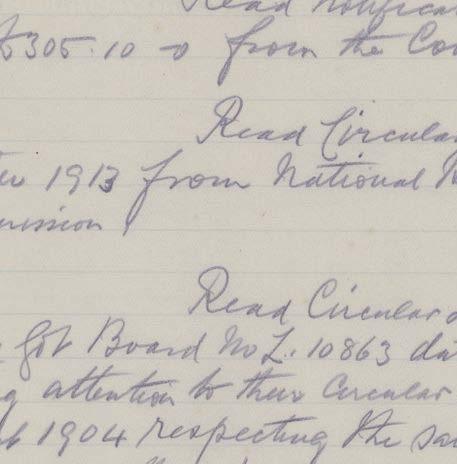 Read notifica
£305.10-0 from the Co
Read Circular
1913 from National
mission
Read Circular
Govt Board No L. 10863 da
g attention to their Circular
1904 respecting the sa